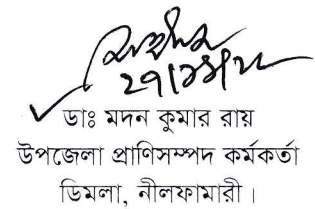 ডাঃ মদন কুমার রায়
উপজেলা প্রাণিসম্পদ কর্মকর্তা
ডিমলা, নীলফামারী।